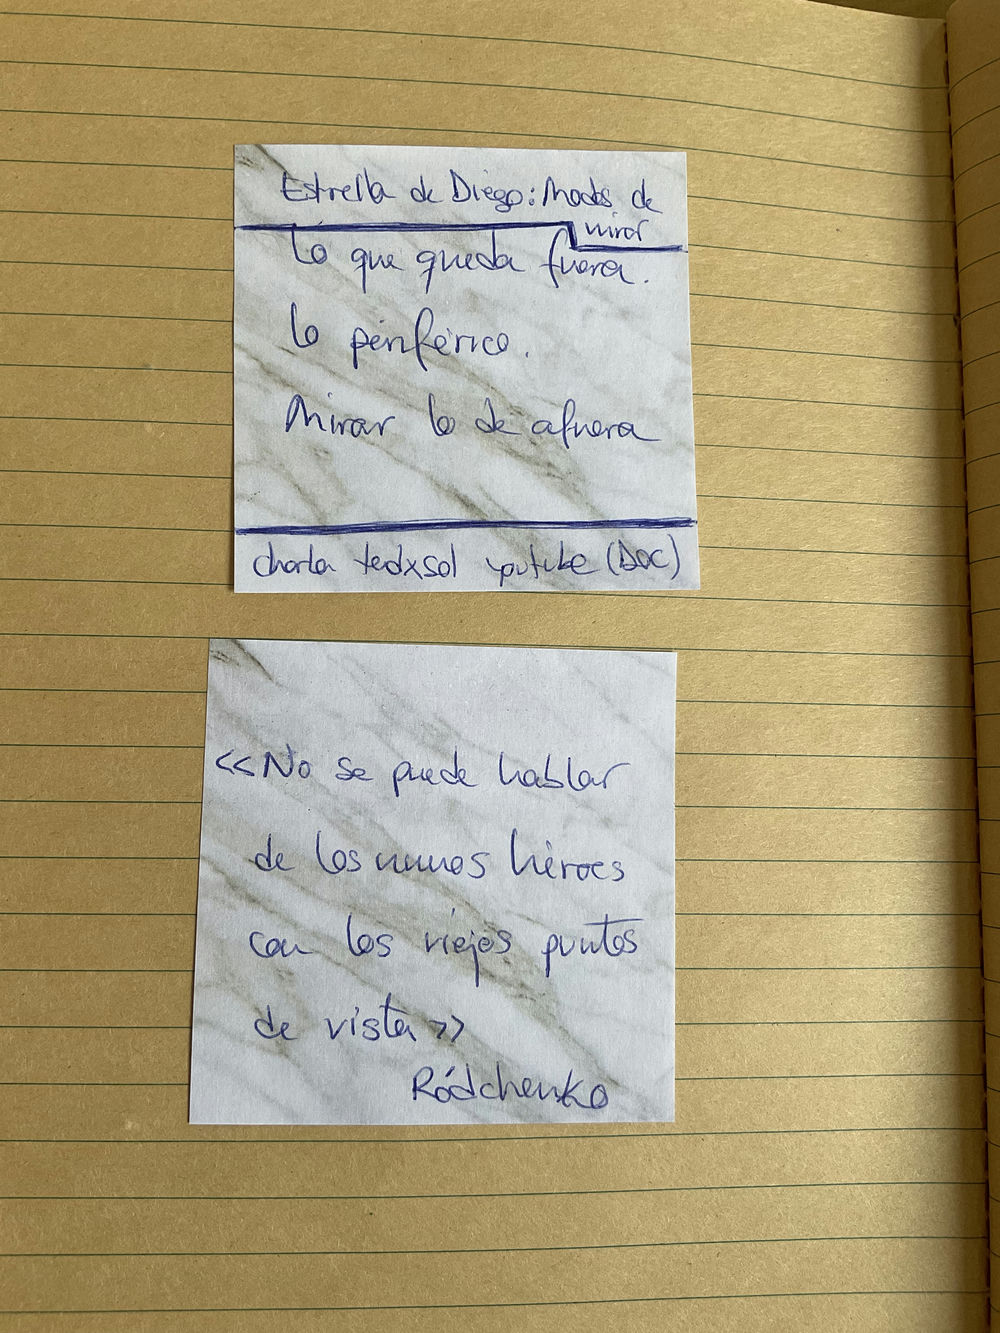 Estrella de Diego: Modos de
mirar
lo que queda fuera.
lo periférico.
Mirar lo de afuera
charla tedxsol youtube (DOC)
<<No se puede hablar
de los nuevos héroes
con los viejos puntos
de vista>>
Ródchenko